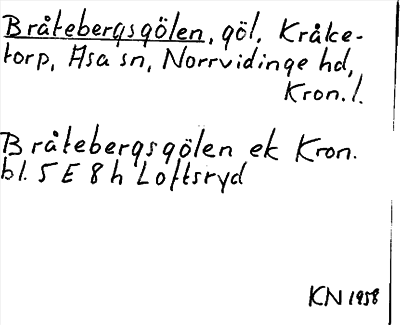 Bråtebergsgölen, göl, Kråke-
torp, Asa sn, Norrvidinge hd,
Kron. l.
Bråtebergsgölen ek Kron.
bl. 5 E 8 h Loftsryd
KN 1958